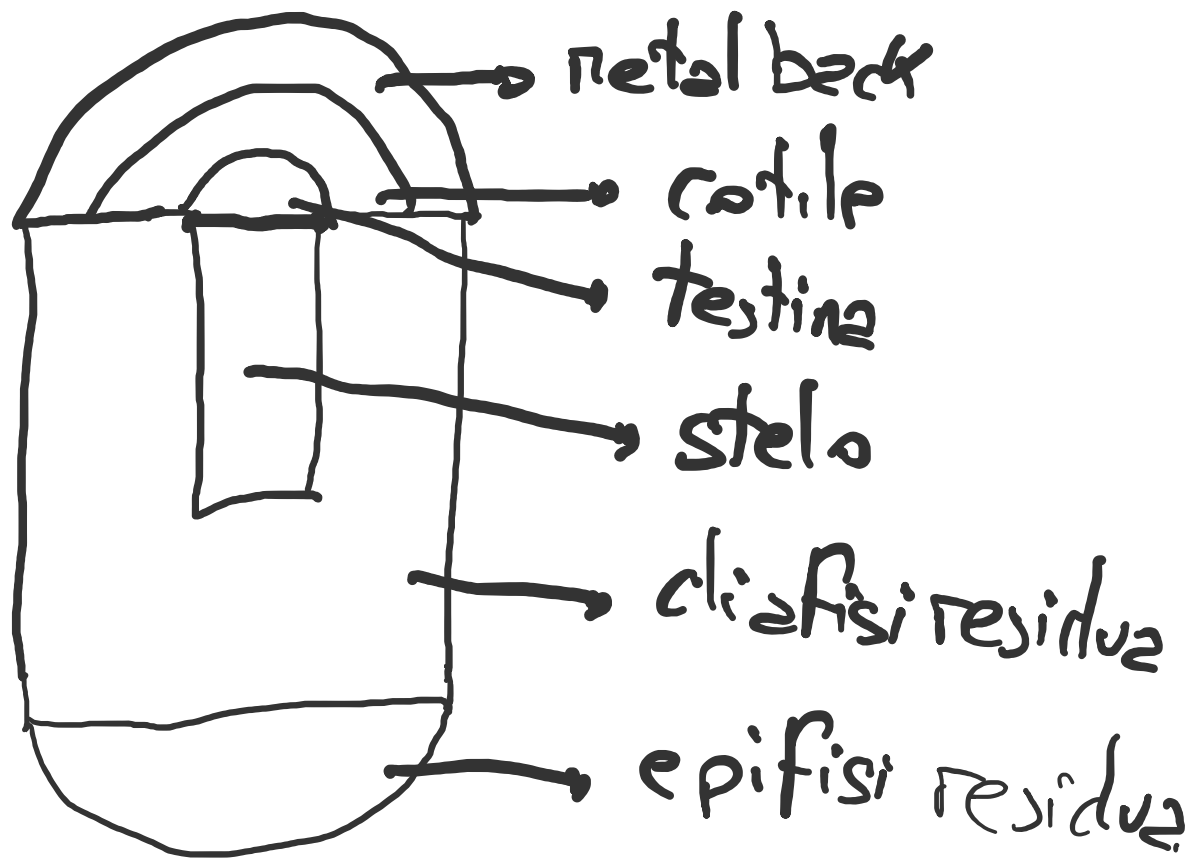 metal back
cotile
testina
stelo
diafisi residua
epifisi residua